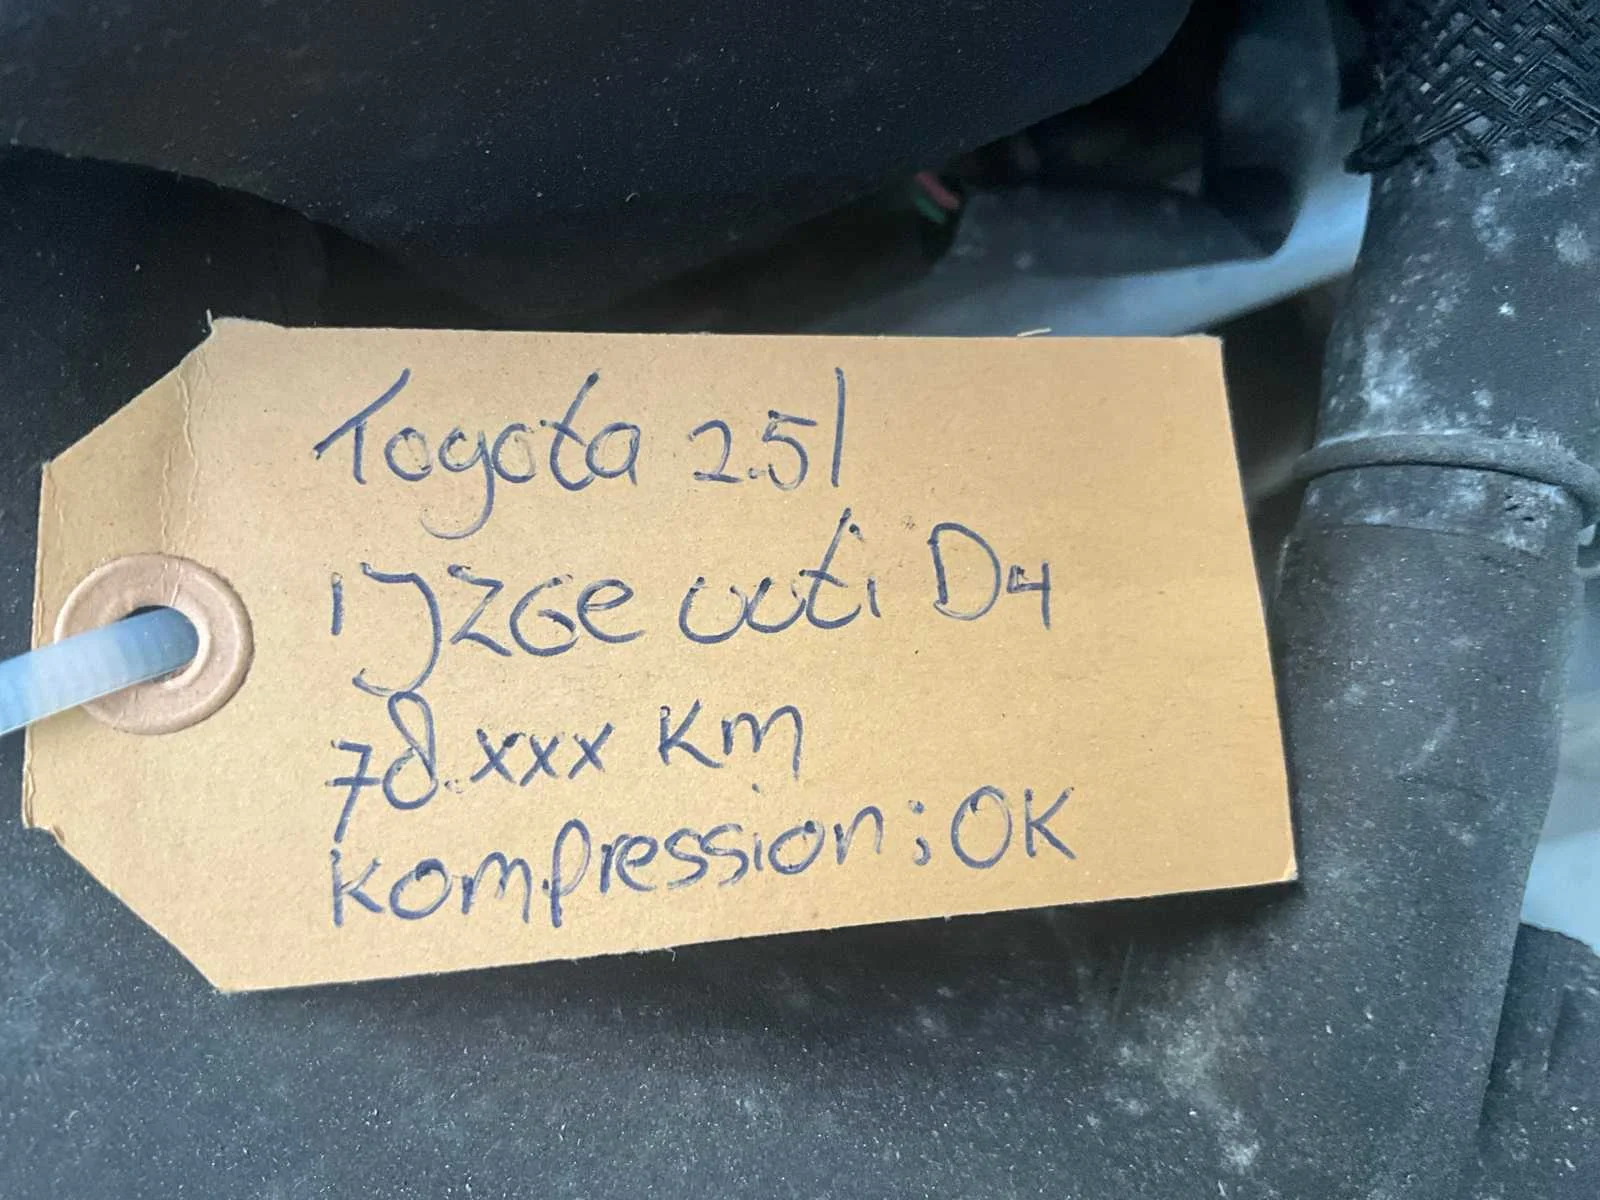 Toyota 2.5l
1JZGe vvti D4
78.xxx km
kompression; OK